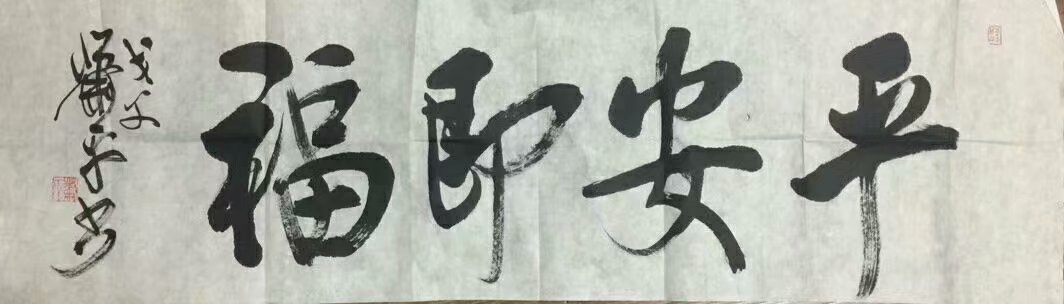 平安即福
戊子
书